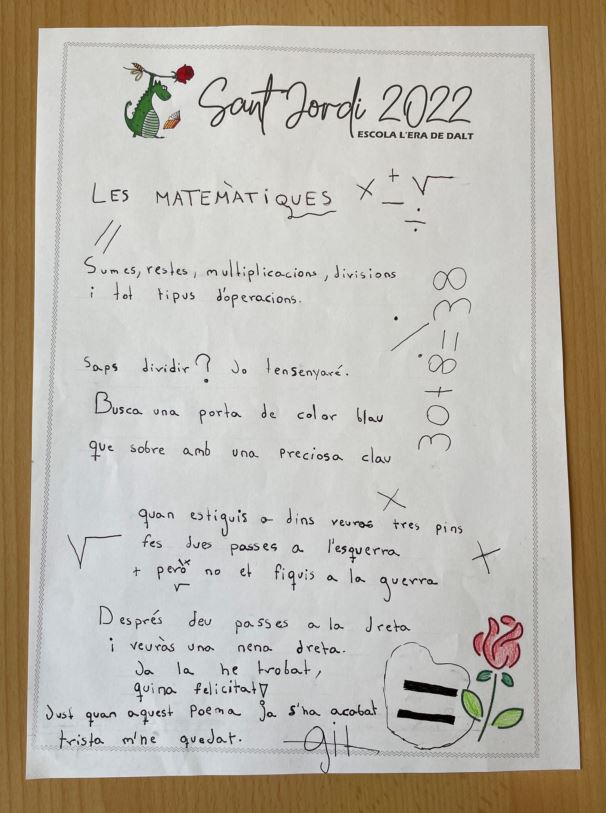 Sant Jordi 2022
ESCOLA L'ERA DE DALT
LES MATEMÀTIQUES × + − √ ÷
Sumes, restes, multiplicacions, divisions
i tot tipus d'operacions.
30+8=38
Saps dividir? Jo tensenyaré.
Busca una porta de color blau
que sobre amb una preciosa clau
quan estiguis a dins veuras tres pins
fes dues passes a l'esquerra
+ però no et fiquis a la guerra
Després deu passes a la dreta
i veuràs una nena dreta.
Ja la he trobat,
quina felicitat!
Just quan aquest Poema ja s'ha acabat
trista m'ne quedat.